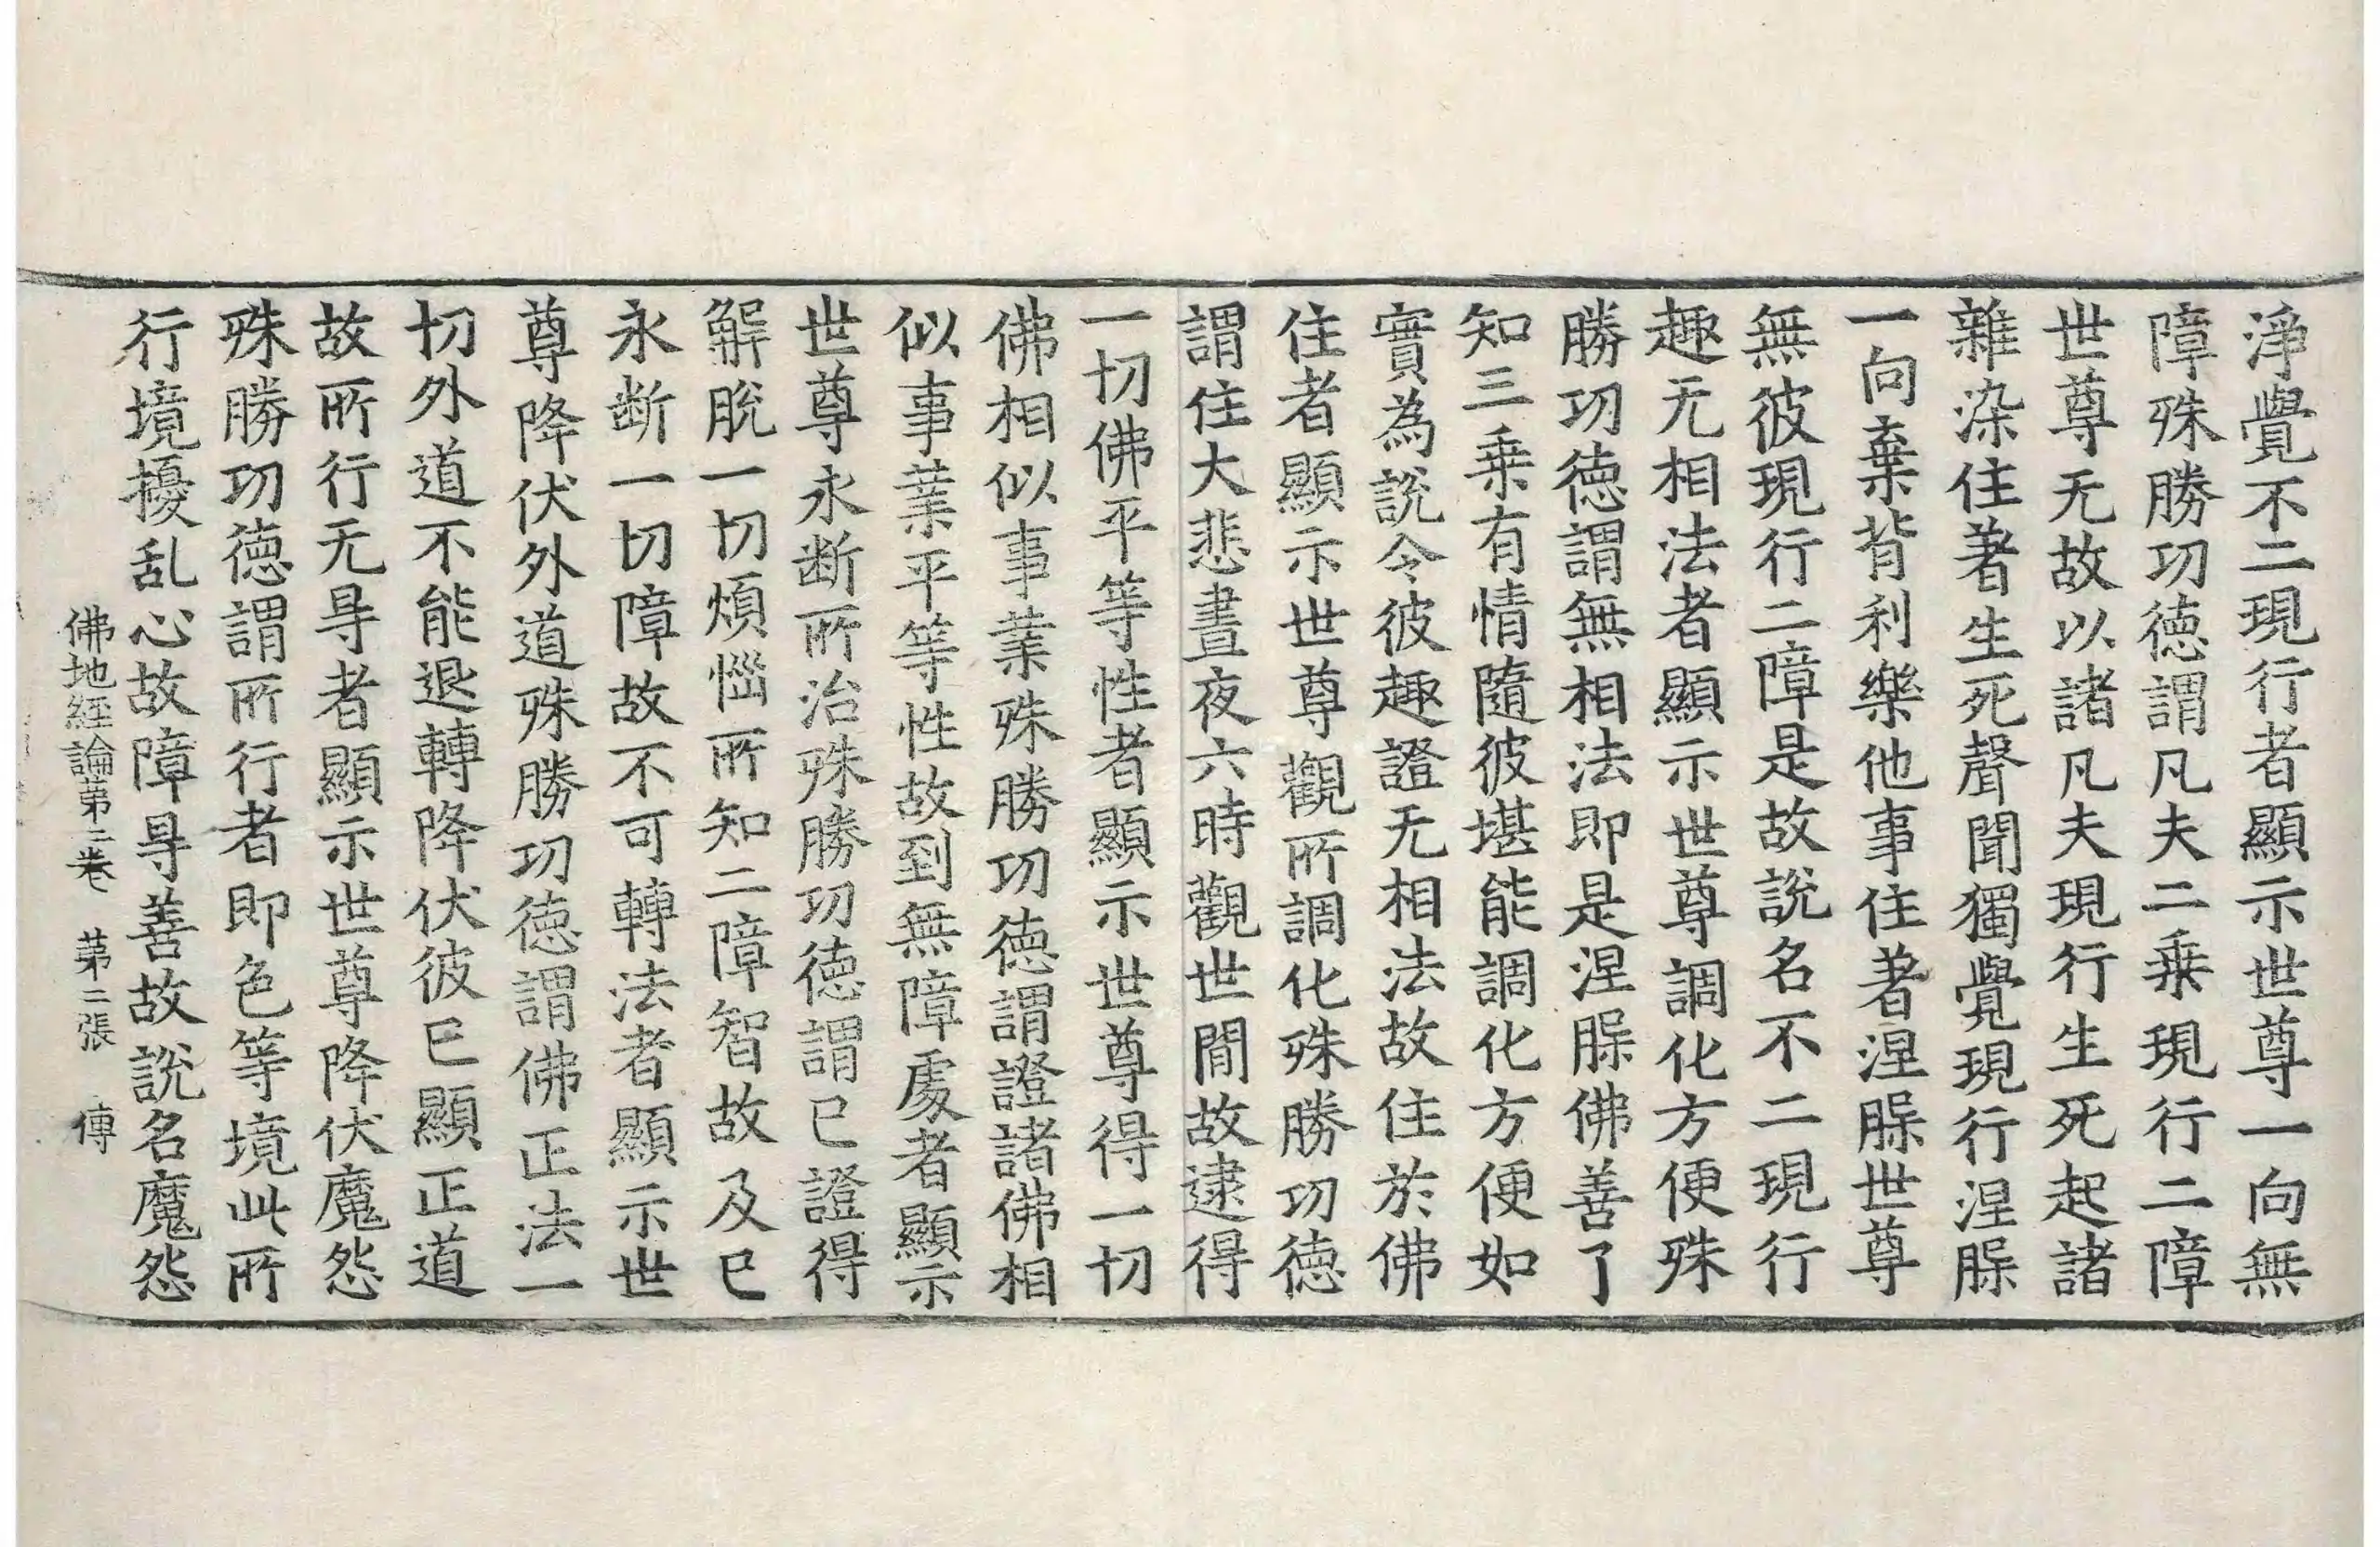 淨覺不二現行者顯示世尊一向無
障殊勝功徳謂凡夫二乗現行二障
世尊无故以諸凡夫現行生死起諸
雜染住著生死聲聞獨覺現行涅𣊟
一向棄背利樂他事住著涅𣊟世尊
無彼現行二障是故說名不二現行
趣无相法者顯示世尊調化方便殊
勝功徳謂無相法即是涅𣊟佛善了
知三乗有情隨彼堪能調化方便如
實為說令彼趣證无相法故住於佛
住者顯示世尊觀所調化殊勝功徳
謂住大悲晝夜六時觀世間故逮得
一切佛平等性者顯示世尊得一切
佛相似事業殊勝功徳謂證諸佛相
似事業平等性故到無障處者顯示
世尊永断所治殊勝功徳謂已證得
解脫一切煩惱所知二障智故及已
永断一切障故不可轉法者顯示世
尊降伏外道殊勝功徳謂佛正法一
切外道不能退轉降伏彼已顯正道
故所行无㝵者顯示世尊降伏魔怨
殊勝功徳謂所行者即色等境此所
行境擾乱心故障㝵善故說名魔怨
佛地經論第二卷 第二張 傳